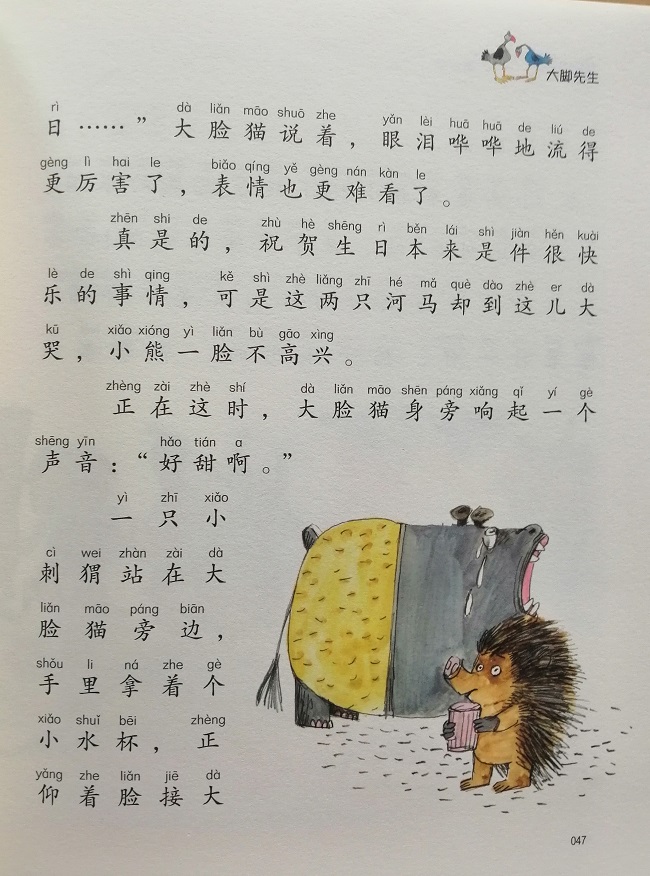 大脚先生
rì dà liǎn māo shuō zhe yǎn lèi huā huā de liú de
日……”大脸猫说着，眼泪哗哗地流得
gèng lì hai le biǎo qíng yě gèng nán kàn le
更厉害了，表情也更难看了。
zhēn shi de zhù hè shēng rì běn lái shì jiàn hěn kuài
真是的，祝贺生日本来是件很快
lè de shì qing kě shì zhè liǎng zhī hé mǎ què dào zhè er dà
乐的事情，可是这两只河马却到这儿大
kū xiǎo xióng yì liǎn bù gāo xìng
哭，小熊一脸不高兴。
zhèng zài zhè shí dà liǎn māo shēn páng xiǎng qǐ yí gè
正在这时，大脸猫身旁响起一个
shēng yīn hǎo tián a
声音：“好甜啊。”
yì zhī xiǎo
一只小
cì wei zhàn zài dà
刺猬站在大
liǎn māo páng biān
脸猫旁边，
shǒu li ná zhe gè
手里拿着个
xiǎo shuǐ bēi zhèng
小水杯，正
yǎng zhe liǎn jiē dà
仰着脸接大
047